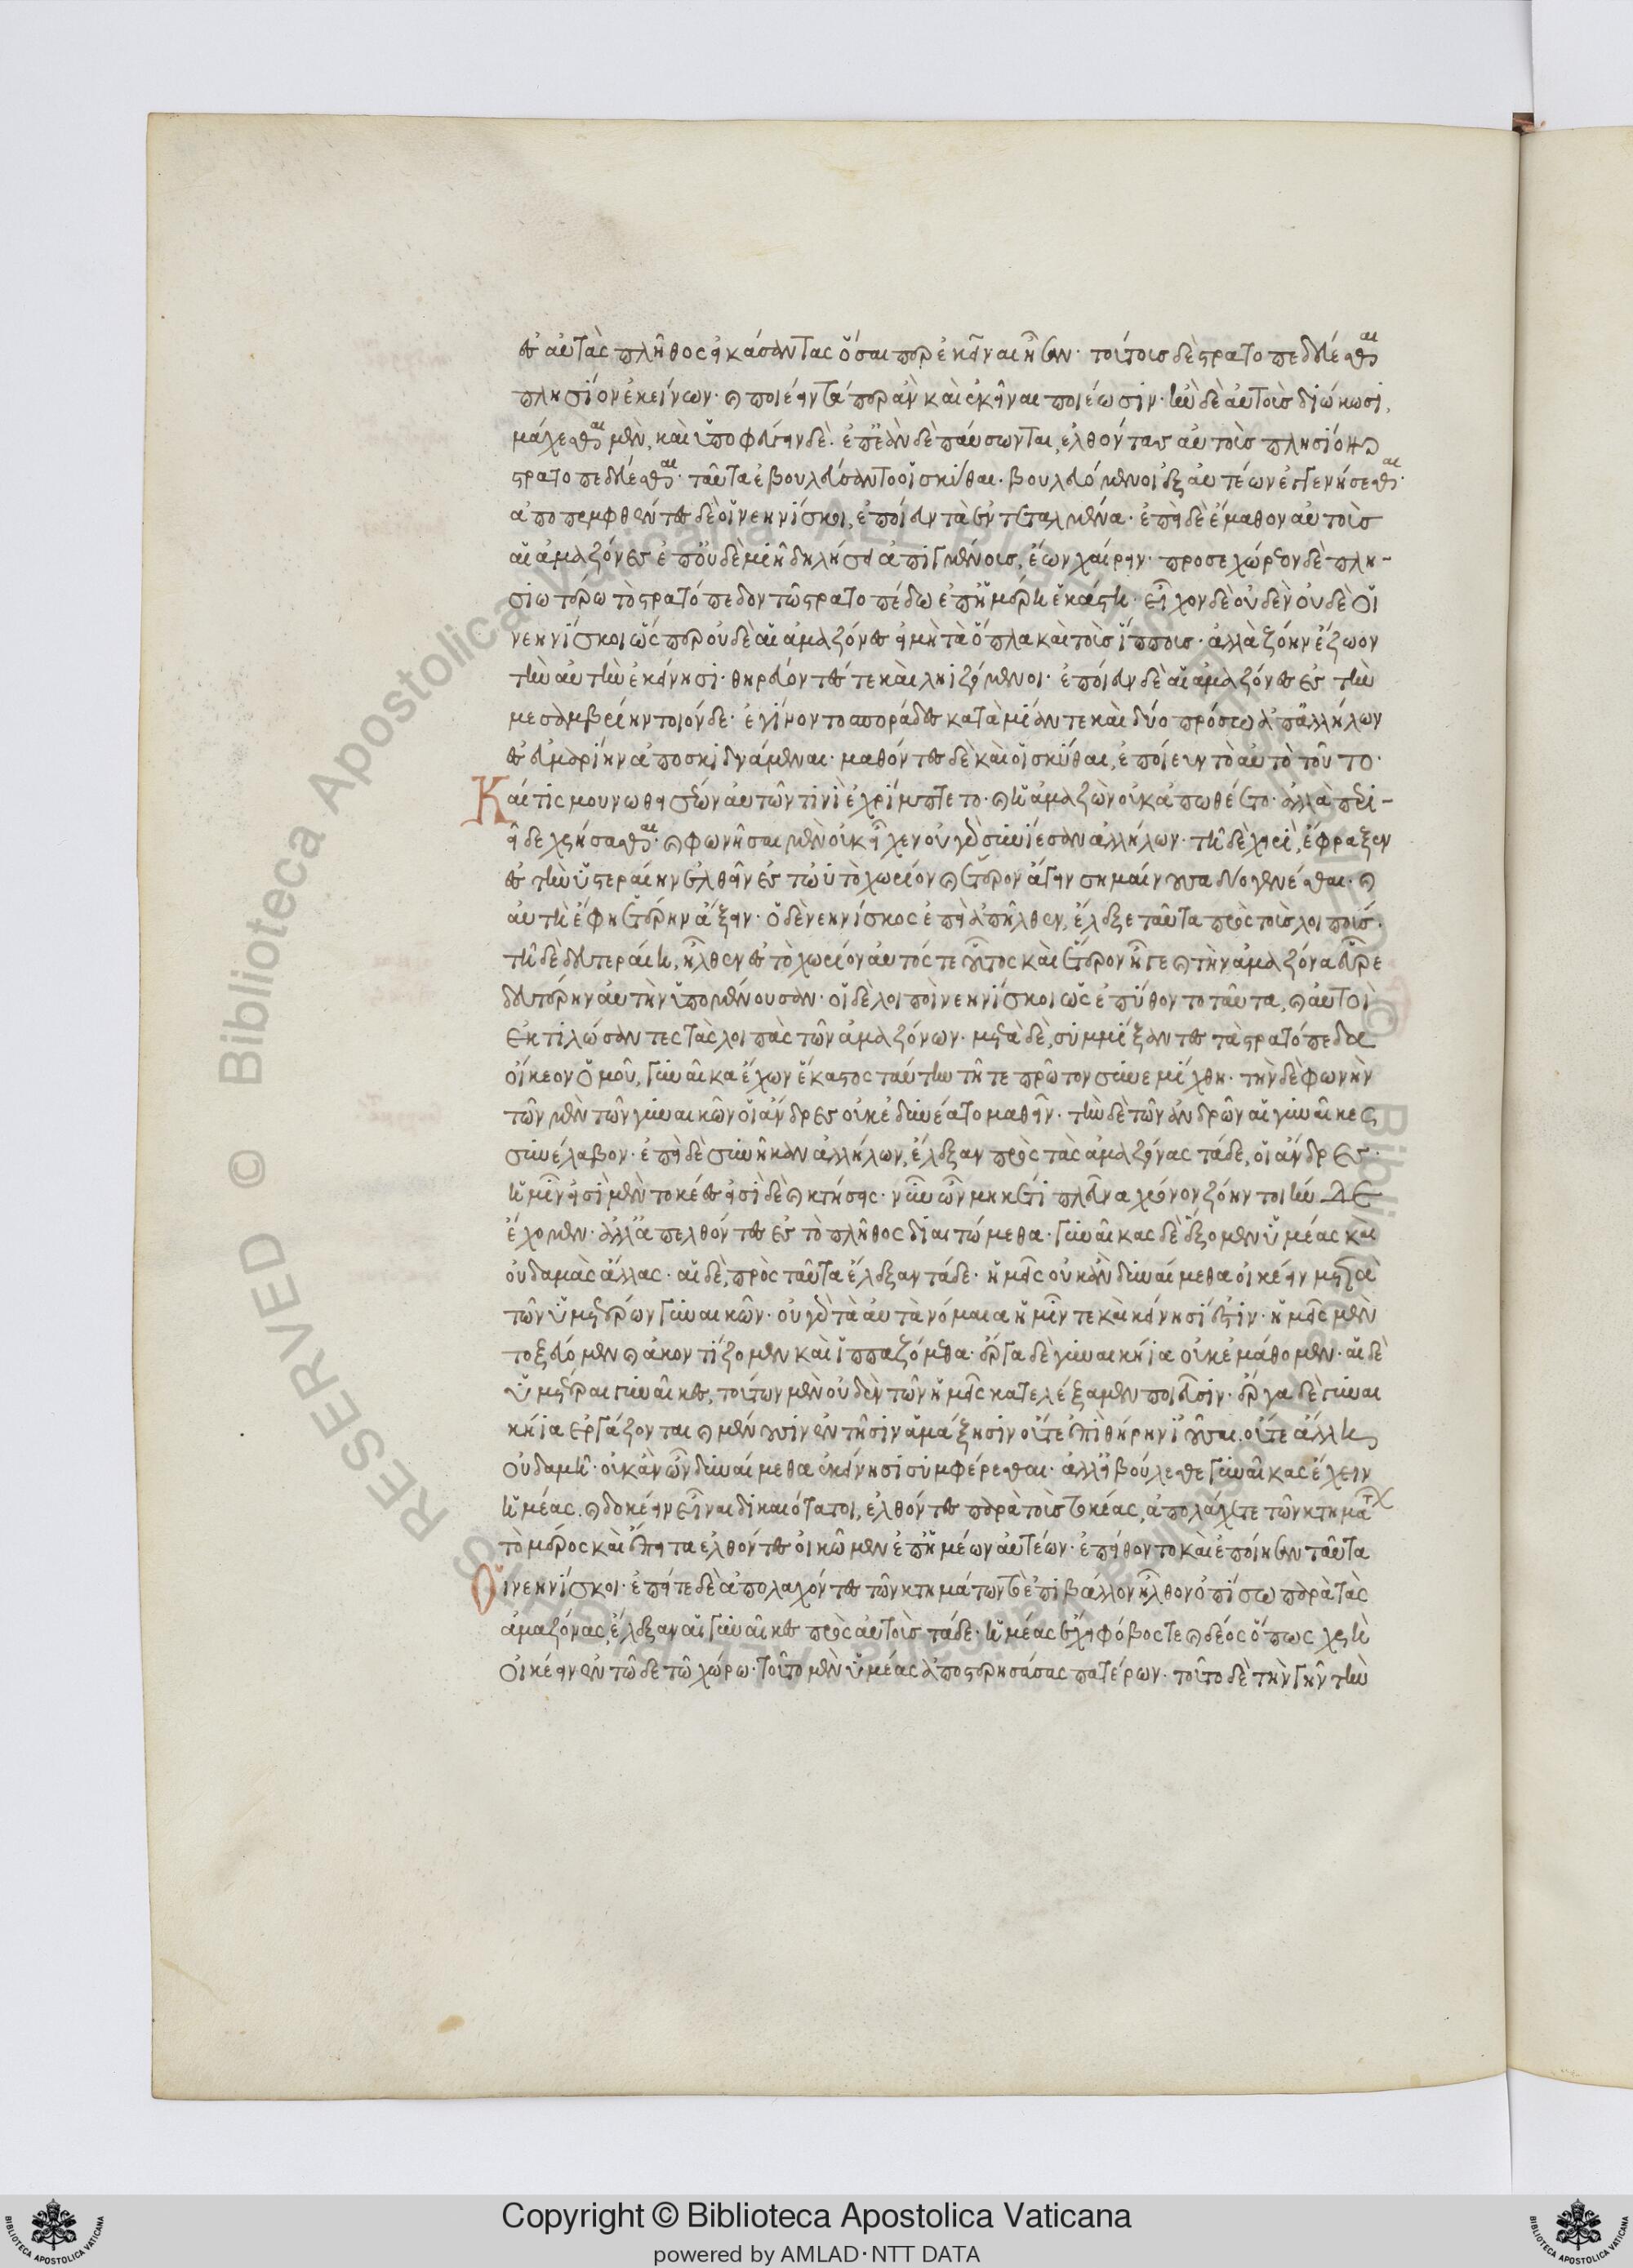 ἐς αὐτὰς πλῆθος εἰκάσαντας ὅσαι περ ἐκεῖναι ἦσαν· τούτους δὲ στρατοπεδεύεσθαι
πλησίον ἐκείνων· καὶ ποιέειν τά περ ἂν καὶ ἐκεῖναι ποιέωσιν· ἢν δὲ αὐτοὺς διώκωσι,
μάχεσθαι μὲν, καὶ ὑποφεύγειν δὲ· ἐπεὰν δὲ παύσωνται, ἐλθόντας αὐτοὺς πλησίον
στρατοπεδεύεσθαι· ταῦτα ἐβουλεύσαντο οἱ σκύθαι· βουλευόμενοι ἐξ αὐτέων ἐκγενήσεσθαι·
ἀποπεμφθέντες δὲ οἱ νεηνίσκοι, ἐποίευν τὰ ἐντεταλμένα· ἐπεὶ δὲ ἔμαθον αὐτοὺς
αἱ ἀμαζόνες ἐπ' οὐδεμιῆ δηλήσει ἀπιγμένους, ἔων χαίρειν· προσεχώρεον δὲ πλη-
σιωτέρω τὸ στρατόπεδον τῶ στρατοπέδω ἐπ' ἡμέρη ἑκάστη· εἶχον δὲ οὐδὲν οὐδὲ οἱ
νεηνίσκοι ὥσπερ οὐδὲ αἱ ἀμαζόνες εἰ μὴ τὰ ὅπλα καὶ τοὺς ἵππους· ἀλλὰ ζόην ἔζωον
τὴν αὐτὴν ἐκείνησι· θηρεύοντές τε καὶ ληιζόμενοι· ἐποίευν δὲ αἱ ἀμαζόνες ἐς τὴν
μεσαμβρίην τοιόνδε· ἐγίνοντο σποράδες κατὰ μίαν τε καὶ δύο πρόσω ἀπ' ἀλλήλων
ἐς εὐμαρίην ἀποσκιδνάμεναι· μαθόντες δὲ καὶ οἱ σκύθαι, ἐποίευν τὸ αὐτὸ τοῦτο·
Καί τις μουνωθεισέων αὐτῶν τινὶ ἐχρίμπτετο· καὶ ἡ ἀμαζὼν οὐκ ἀπωθέετο· ἀλλὰ περι-
εῖδε χρήσασθαι· καὶ φωνῆσαι μὲν οὐκ εἶχεν οὐ γὰρ συνίεσαν ἀλλήλων· τῆ δὲ χειρὶ, ἔφραζεν
ἐς τὴν ὑστεραίην ἐλθεῖν ἐς τὠυτὸ χωρίον καὶ ἕτερον ἄγειν σημαίνουσα δύο γενέσθαι· καὶ
αὐτὴ ἔφη ἑτέρην ἄξειν· ὁ δὲ νεηνίσκος ἐπεὶ ἀπῆλθεν, ἔλεξε ταῦτα πρὸς τοὺς λοιπούς·
τῆ δὲ δευτεραίη, ἦλθεν ἐς τὸ χωρίον αὐτός τε οὗτος καὶ ἕτερον ἦγε καὶ τὴν ἀμαζόνα εὗρε
δευτέρην αὐτὴν ὑπομένουσαν· οἱ δὲ λοιποὶ νεηνίσκοι ὡς ἐπύθοντο ταῦτα, καὶ αὐτοὶ
ἐκτιλώσαντες τὰς λοιπὰς τῶν ἀμαζόνων· μετὰ δὲ, συμμίξαντες τὰ στρατόπεδα
οἴκεον ὁμοῦ, γυναῖκα ἔχων ἕκαστος ταύτην τῆ τε πρῶτον συνεμίχθη· τὴν δὲ φωνὴν
τῶν μὲν τῶν γυναικῶν οἱ ἄνδρες οὐκ ἐδυνέατο μαθεῖν· τὴν δὲ τῶν ἀνδρῶν αἱ γυναῖκες
συνέλαβον· ἐπεὶ δὲ συνῆκαν ἀλλήλων, ἔλεξαν πρὸς τὰς ἀμαζόνας τάδε, οἱ ἄνδρες·
ἡμῖν εἰσὶ μὲν τοκέες εἰσὶ δὲ καὶ κτήσεις· νῦν ὦν μηκέτι πλεῦνα χρόνον ζόην τοιήνδε
ἔχομεν· ἀλλ' ἀπελθόντες ἐς τὸ πλῆθος διαιτώμεθα· γυναῖκας δὲ ἕξομεν ὑμέας καὶ
οὐδαμὰς ἄλλας· αἱ δὲ, πρὸς ταῦτα ἔλεξαν τάδε· ἡμεῖς οὐκ ἂν δυναίμεθα οἰκέειν μετὰ
τῶν ὑμετέρων γυναικῶν· οὐ γὰρ τὰ αὐτὰ νόμαια ἡμῖν τε κἀκείνησί ἐστιν· ἡμεῖς μὲν
τοξεύομεν καὶ ἀκοντίζομεν καὶ ἱππαζόμεθα· ἔργα δὲ γυναικήια οὐκ ἐμάθομεν· αἱ δὲ
ὑμέτεραι γυναῖκες, τούτων μὲν οὐδὲν τῶν ἡμεῖς κατελέξαμεν ποιεῦσιν· ἔργα δὲ γυναι
κήια ἐργάζονται καὶ μένουσιν ἐν τῆσιν ἁμάξησιν οὔτε ἐπὶ θήρην ἰοῦσαι οὔτε ἄλλη
οὐδαμῆ· οὐκ ἂν ὦν δυναίμεθα ἐκείνησι συμφέρεσθαι· ἀλλ' εἰ βούλεσθε γυναῖκας ἔχειν
ἡμέας καὶ δοκέειν εἶναι δικαιότατοι, ἐλθόντες παρὰ τοὺς τοκέας, ἀπολάχετε τῶν κτημάτων
τὸ μέρος καὶ ἔπειτα ἐλθόντες οἰκῶμεν ἐπ' ἡμέων αὐτέων· ἐπείθοντο καὶ ἐποίησαν ταῦτα
Οἱ νεηνίσκοι· ἐπείτε δὲ ἀπολαχόντες τῶν κτημάτων τὸ ἐπιβάλλον ἦλθον ὀπίσω παρὰ τὰς
ἀμαζόνας, ἔλεξαν αἱ γυναῖκες πρὸς αὐτοὺς τάδε· ἡμέας ἔχει φόβος τε καὶ δέος ὅπως χρὴ
οἰκέειν ἐν τῶδε τῶ χώρω· τοῦτο μὲν ὑμέας ἀποστερησάσας πατέρων· τοῦτο δὲ τὴν γῆν τὴν
Copyright © Biblioteca Apostolica Vaticana
powered by AMLAD·NTT DATA